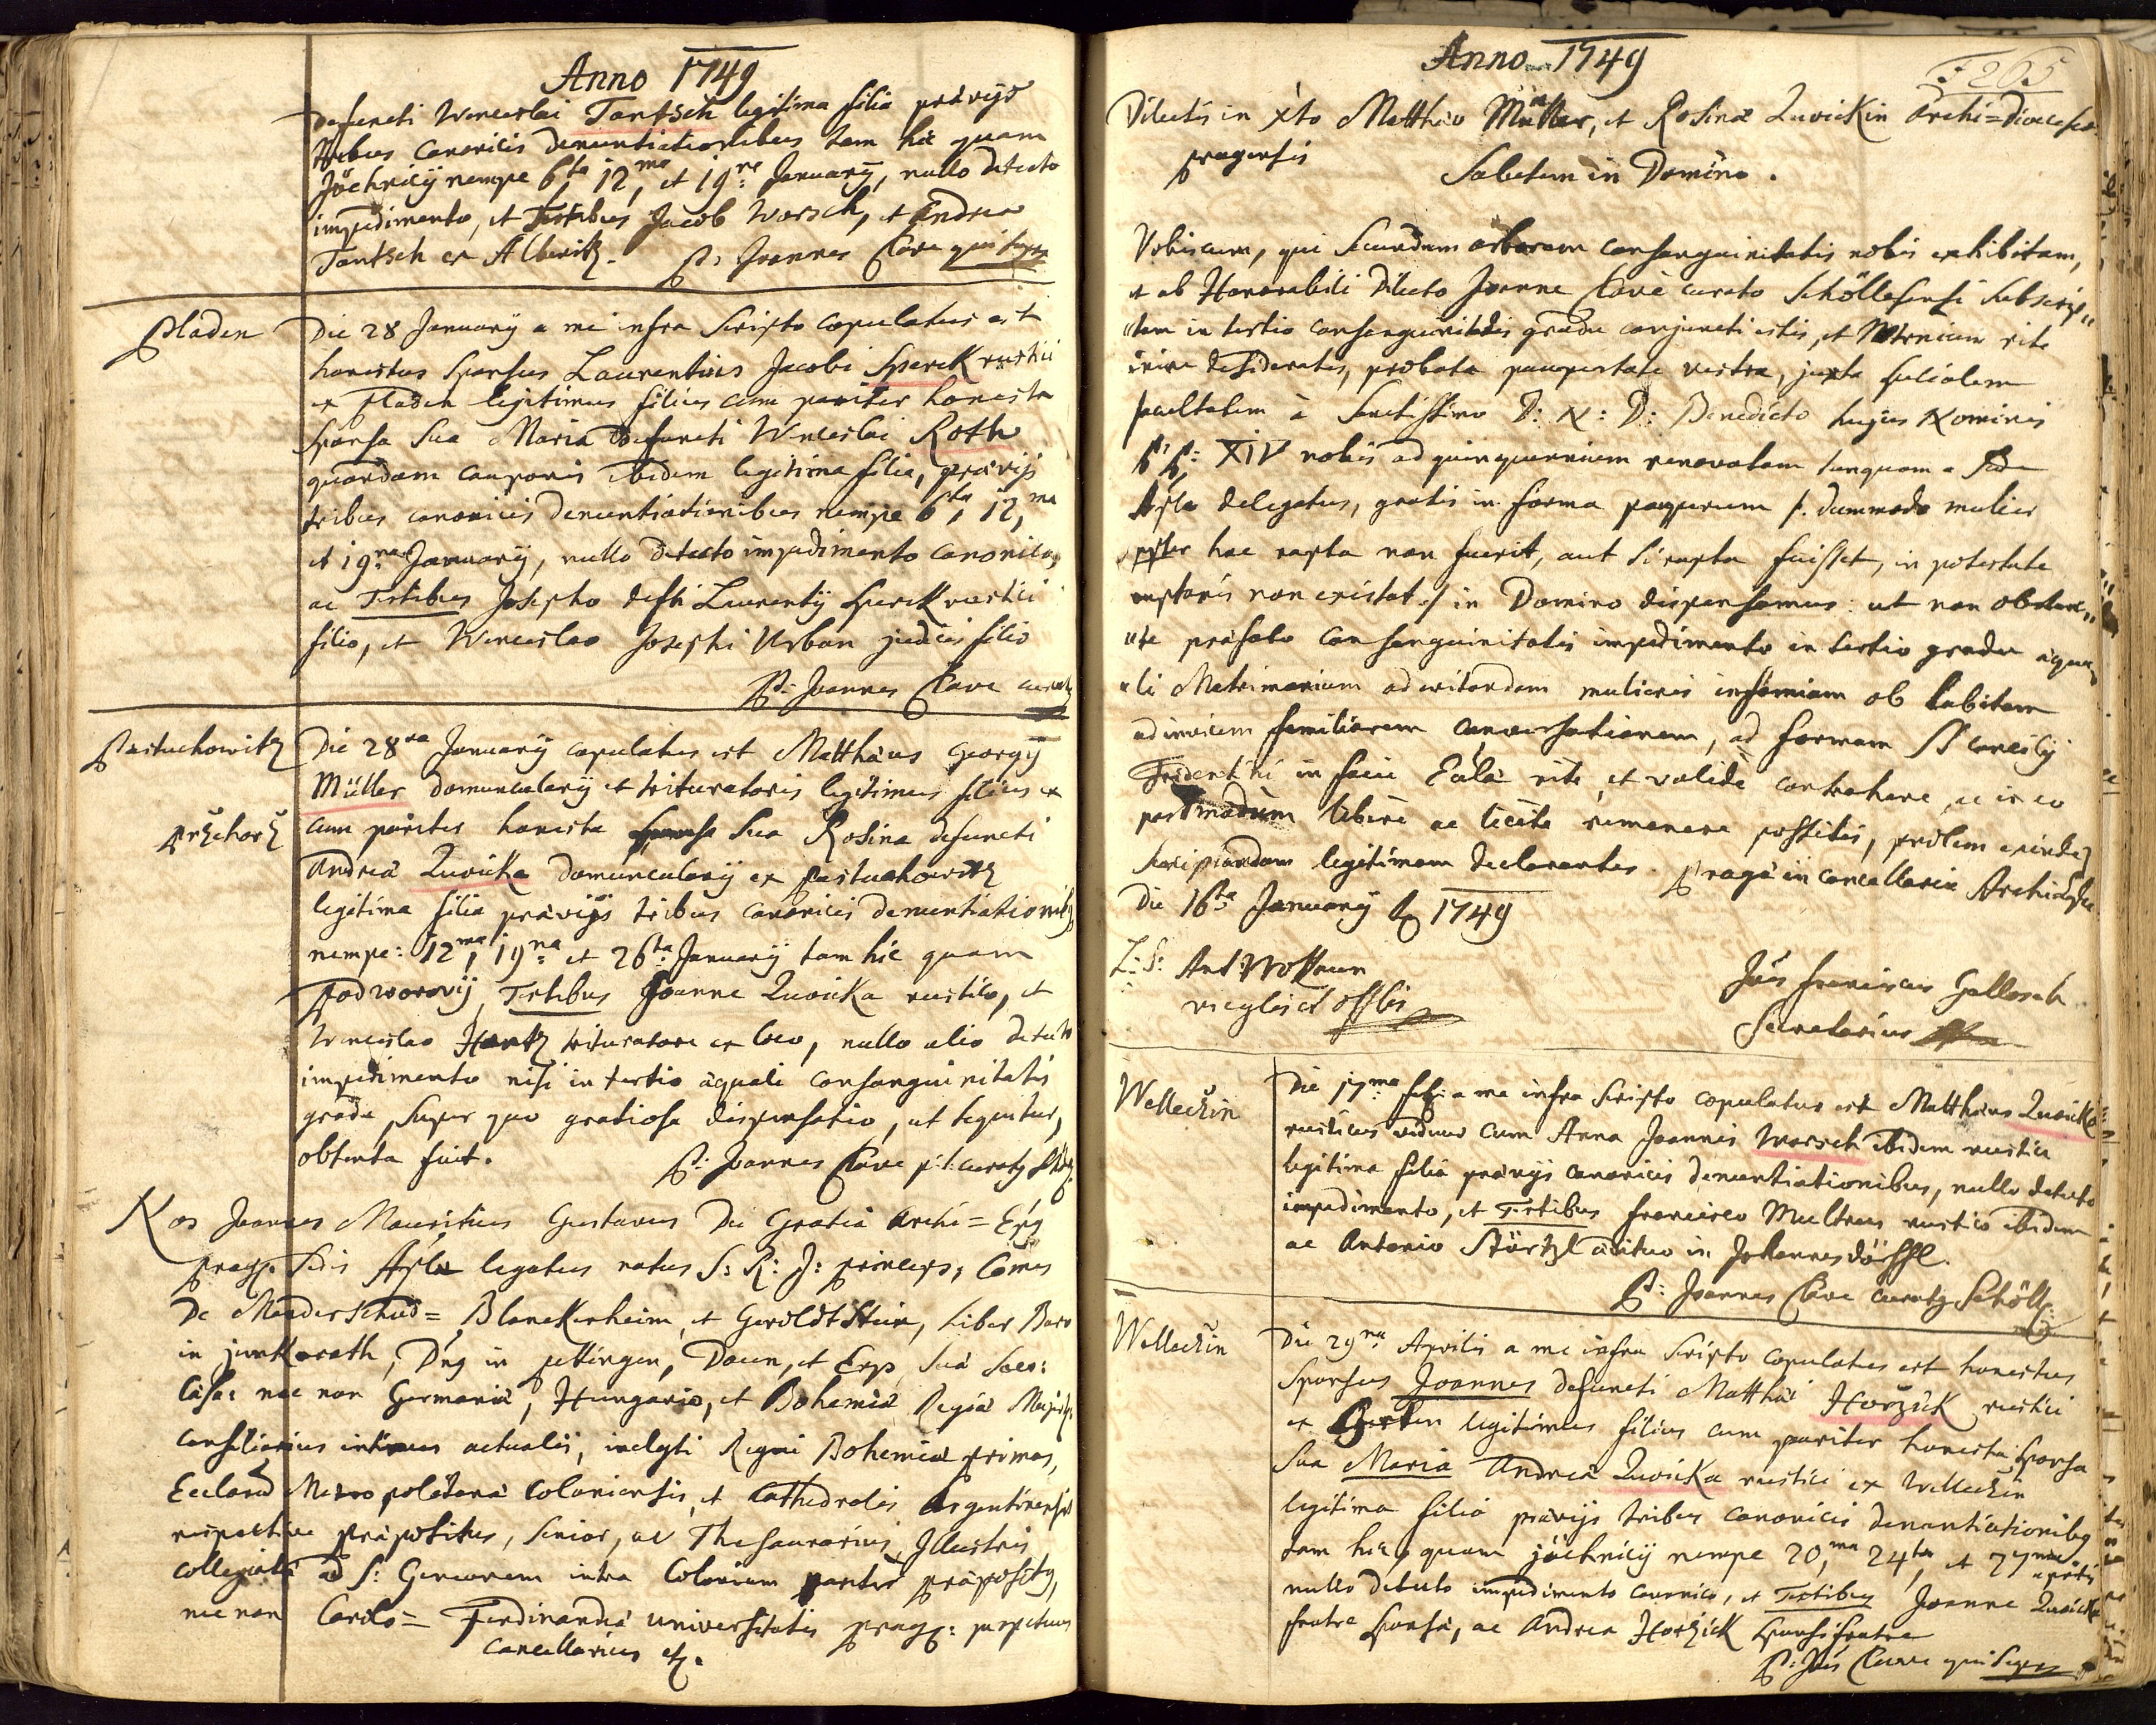 Anno 1749
defuncti Wenceslai Tantsch legitima filia praevijs
tribus canonicis denuntiationibus tam hic quam
Jöchnicij nempe 6ta 12ma, et 19na January, nullo detecto
impedimento, et Testibus Jacob Worsch, et Andrea
Tantsch ex Alberitz. P: Joannes Clave qui supra
Pladen
Die 28 January a me infra scripto copulatus est
honestus Sponsus Laurentius Jacobi Sperck rustici
ex Pladen legitimus filius cum pariter honesta
sponsa sua Maria defuncti Wenceslai Roth
quondam cauponis ibidem legitima filia, praevijs
tribus canonicis denuntiationibus nempe 6ta, 12ma
et 19na January, nullo detecto impedimento canonico,
ac Testibus Josepho defti Laurentij Sperck rustici
filio, et Wenceslao Josephi Urban judicis filio
P: Joannes Clave curatg
Pastuchowitz
Die 28va January copulatus est Matthaeus Georgij
Müller domuncularij et trituratoris legitimus filius ex
Przehorz
cum pariter honesta sponsa sua Rosina defuncti
Andreae Zuvicka domuncularij ex Pastuchowitz
legitima filia praevijs tribus canonicis denuntiationibg
nempe: 12ma, 19na et 26ta January tam hic quam
Podworovij, Testibus Joanne Zuvicka rustico, et
Wenceslao Hantz trituratore ex loco, nullo alio detecto
impedimento nisi in tertio aequali consanguinitatis
gradu, super quo gratiosa dispensatio, ut sequitur,
obtenta fuit. P: Joannes Clave p:t: curatg
Nos Joannes Mauritius Gustavus Dei Gratia Archi=Epg
prag: Sedis Aplae legatus natus S: R: J: princeps, Comes
De Manderscheid= Blanckenheim, et Geroldtstein, Liber Baro
in junkerath, Dng in Dettingen, Daun, et Erp, Suae Sacr:
Caes: nec non Germaniae, Hungariae, et Bohemiae Regiae Majest:
consiliarius intimus actualis, inclyti Regni Bohemiae primas,
Ecclarum Metropolitanae Coloniensis, et Cathedralis Argentinensis
respective Praepositus, Senior, ac Thesaurarius, Illustris
collegiatae ad S: Gereonem intra Coloniam pariter praepositg,
nec non Carolo= Ferdinandeae Universitatis prag: perpetuus
Cancellarius etz.
Anno 1749
F 265
Dilectis in Xto Matthaeo Müller, et Rosinae Zuvickin Archi=Dioecesis
pragensis
Salutem in Domino.
Vobiscum, qui secundum arborem consanguinitatis nobis exhibitam,
et ab Honorabili Dilecto Joanne Clavè curato Schöllesensi subscrip„
„tam in tertio consanguinitatis gradu conjuncti estis, et Mtrimonium rite
inire desideratis, probata paupertate vestra, juxta specialem
facultatem à Sanctissimo D: N: D: Benedicto hujus Nominis
PP: XIV nobis ad quinquennium renovatam tanquam a Sede
Apla delegatus, gratis in forma pauperum /: dummodo mulier
propter hac rapta non fuerit, aut si rapta fuisset, in potestate
raptoris non existat :/ in Domino dispensamus: ut non obstan„
„te praefato consanguinitatis impedimento in tertio gradu aequa„
„li Matrimonium ad evitandam mulieris infamiam ob habitam
ad invicem familiarem conversationem, ad formam SS Concilij
Tridentini in facie Eclae rite, et valide contrahere, ac in eo
postmodum libere ac licite remanere possitis, prolem exinde
suscipiendam legitimam declarantes. Pragae in Cancellaria Archiepli
Die 16ta January Ao 1749
L: S: Ant: Wokaun
vicglis et offlis
Jös Franciscus Gallasch
Secretarius
Welleczin
Die 17ma feb: a me infra scripto copulatus est Matthaeus Zuvicka
rusticus viduus cum Anna Joannis Worsch ibidem rustici
legitima filia praevijs canonicis denuntiationibus, nullo detecto
impedimento, et Testibus Francisco Multrus rustico ibidem
ac Antonio Störtzl aedituo in Johannesdörffl.
P: Joannes Clave curatg Schöll:
Welleczin
Die 29na Aprilis a me infra scripto copulatus est honestus
Sponsus Joannes defuncti Matthaei Horzick rustici
ex legitimus filius cum pariter honesta sponsa
sua Maria Andreae Zuvicka rustici ex Welleczin
legitima filia praevijs tribus canonicis denuntiationibg
tam hic, quam jöchnicij nempe 20ma, 24ta, et 27ma aprilis
nullo detecto impedimento canonico, et Testibus Joanne Zuvicka
fratre sponsae, ac Andrea Horzick sponsi fratre
P: Jös Clave qui supra